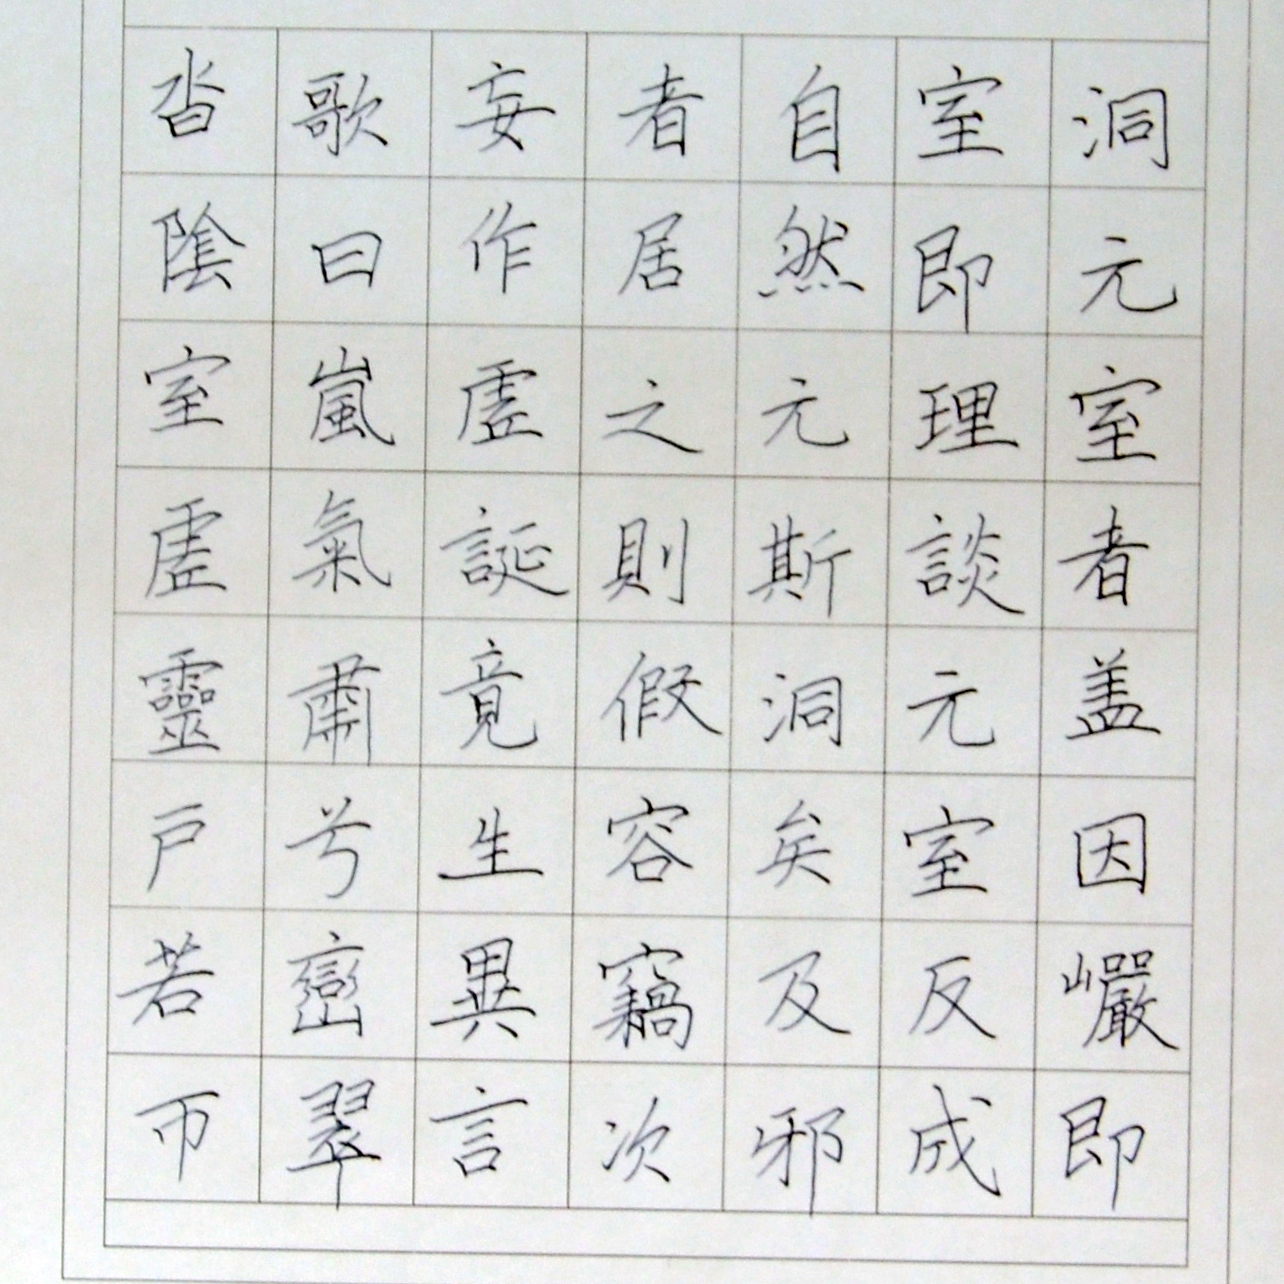 洞元室者盖因巖即
室即理談元室反成
自然元斯洞矣及邪
者居之則假容竊次
妄作虛誕竟生異言
歌曰嵐氣肅兮巒翠
沓陰室虛靈戶若帀